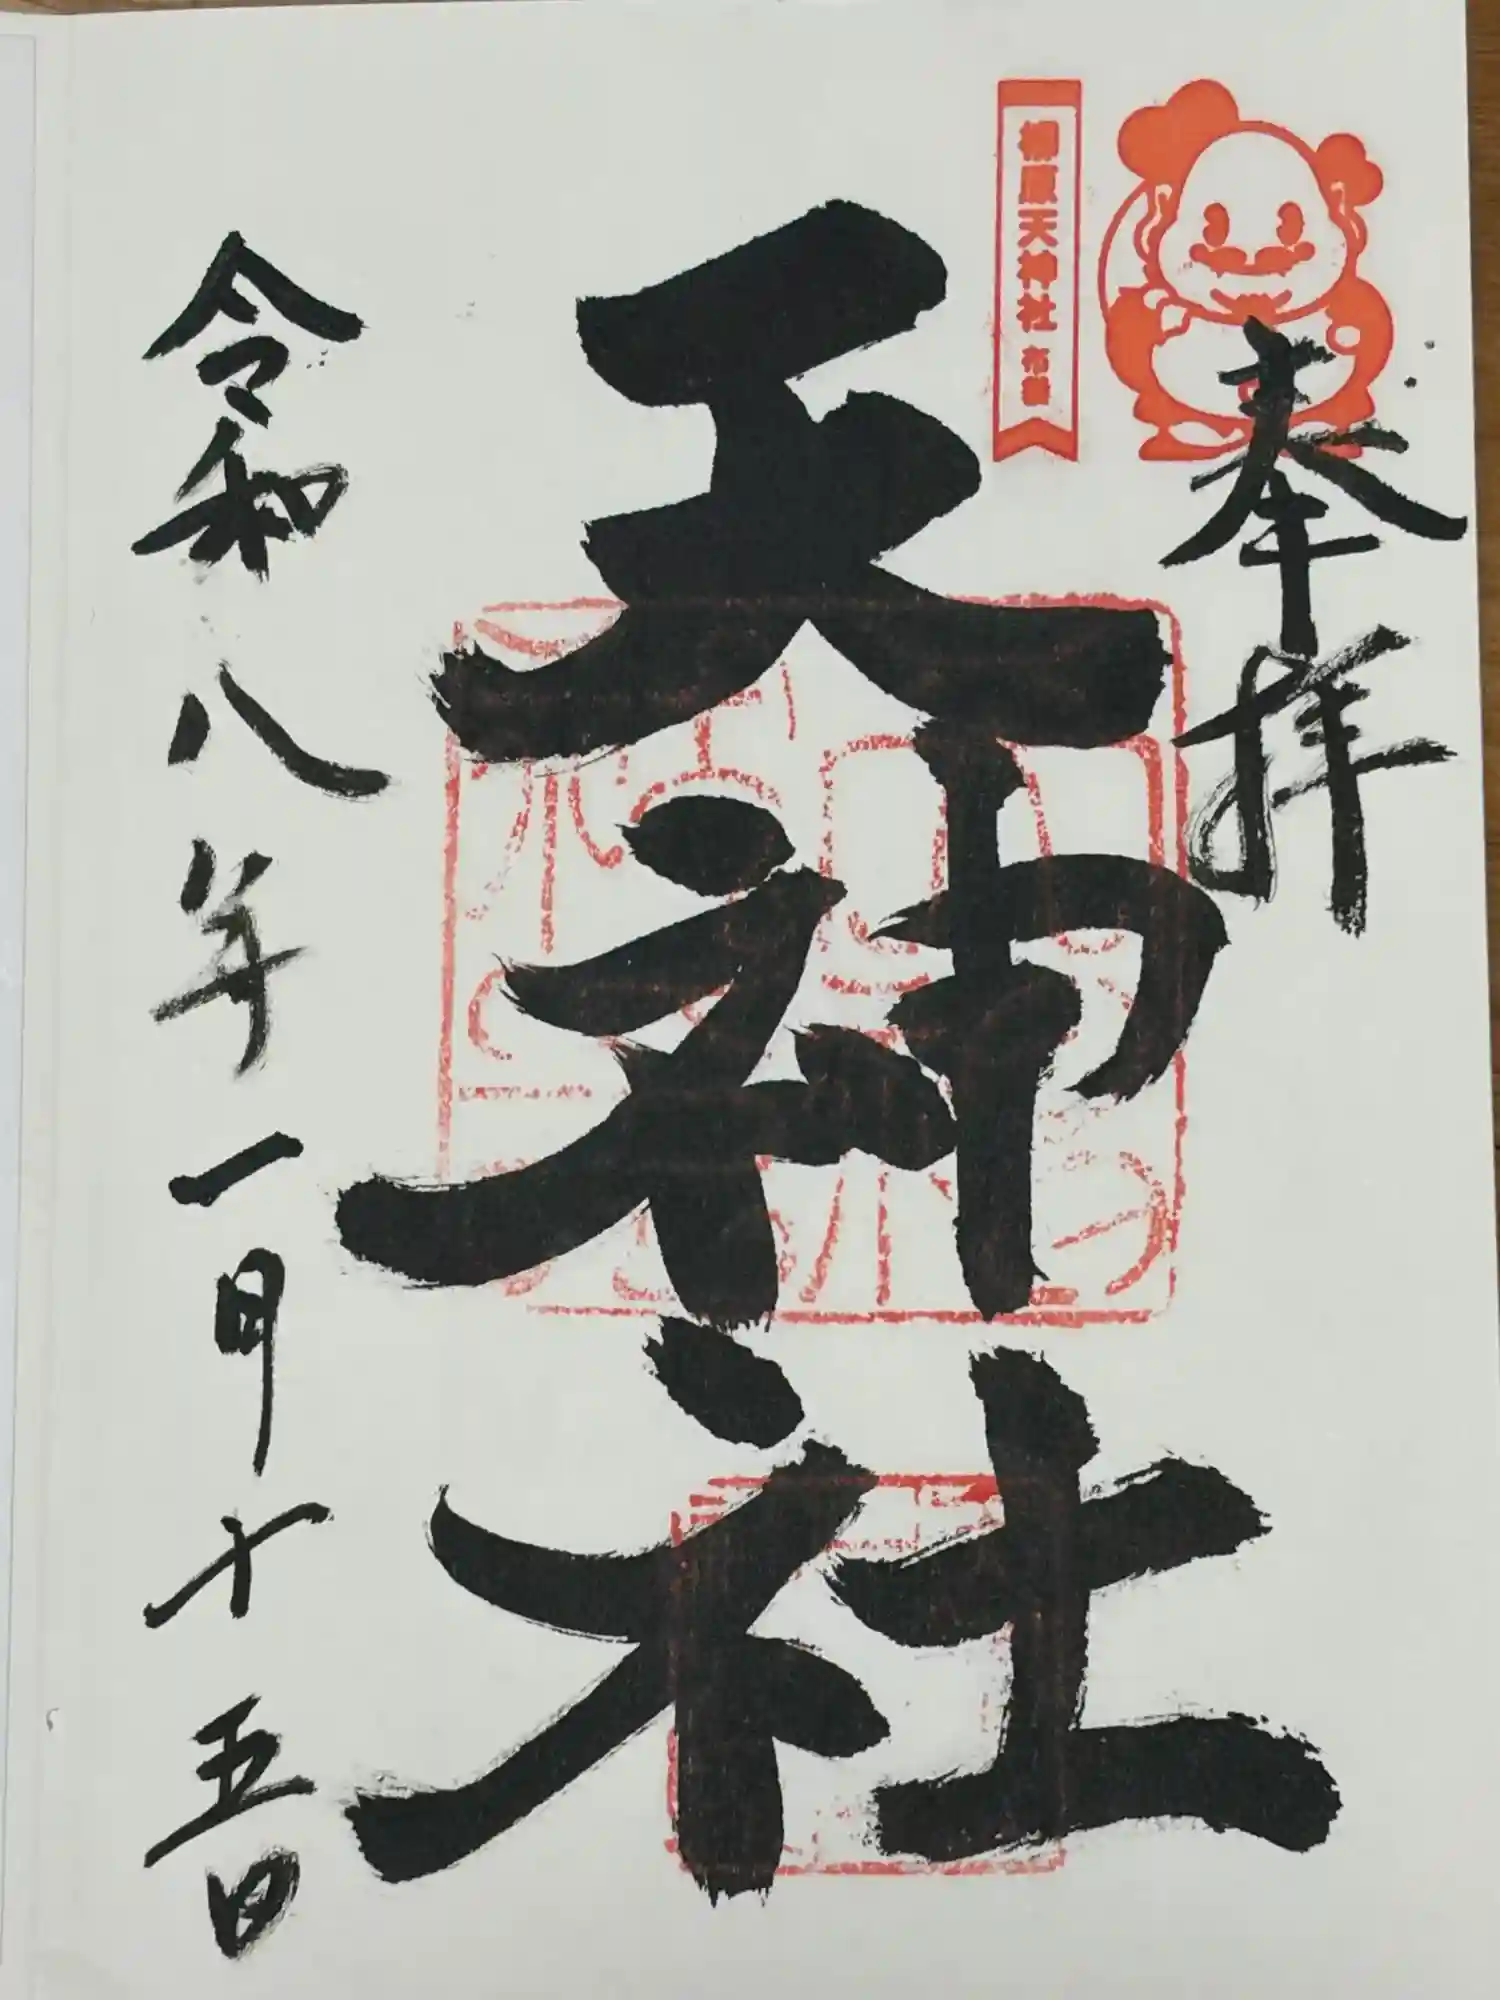 奉拝
天神社 布袋
天神社
令和八年一月十五日